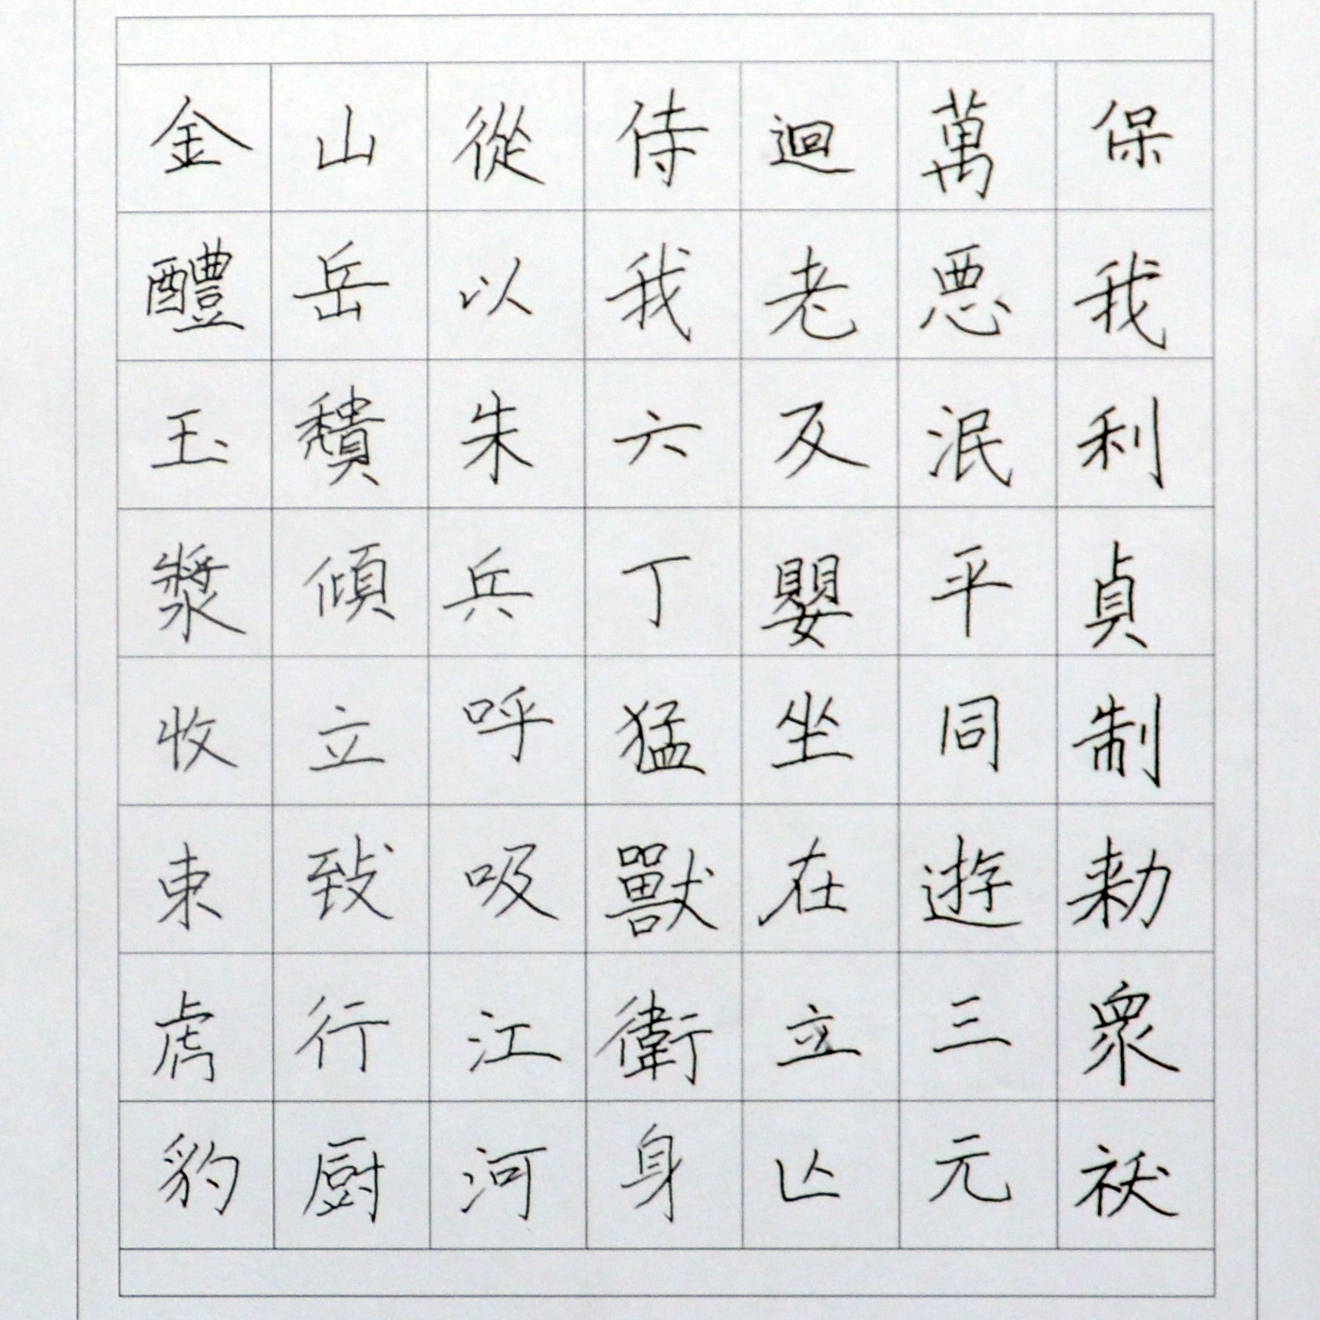 保我利貞制勑衆祆
萬惡泯平同遊三元
迴老反嬰坐在立亾
侍我六丁猛獸衛身
從以朱兵呼吸江河
山岳積傾立致行厨
金醴玉漿收束虎豹